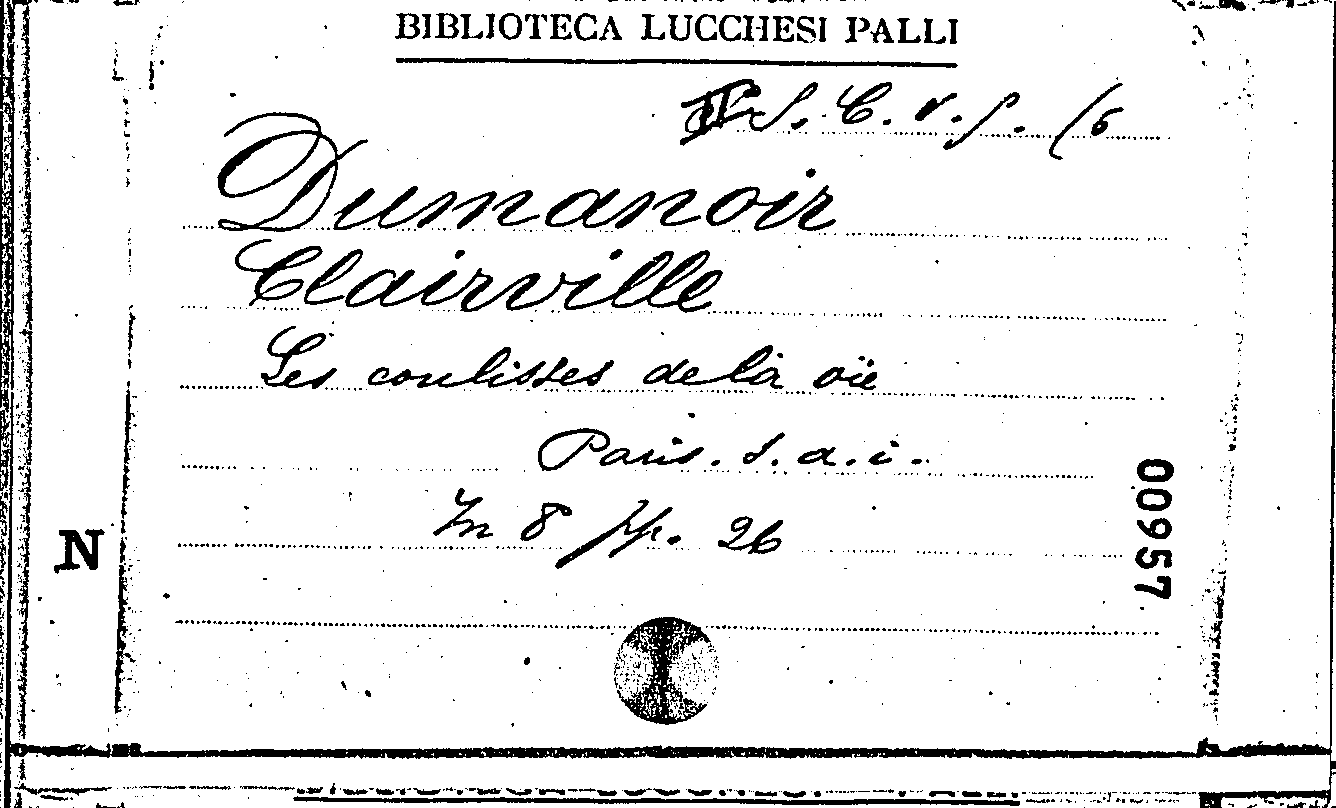 BIBLIOTECA LUCCHESI PALLI
S. C. v. s. (6
Dumanoir
Clairville
Les coulisses de la vie
Paris. s. a. i.
In 8 pp. 26
N
00957